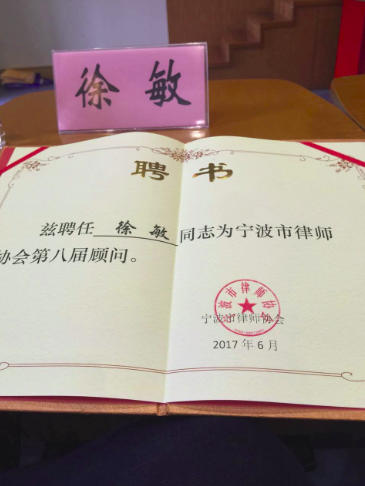 徐敏
聘书
兹聘任 徐敏 同志为宁波市律师
协会第八届顾问。
宁波市律师协会
宁波市律师协会
2017年6月